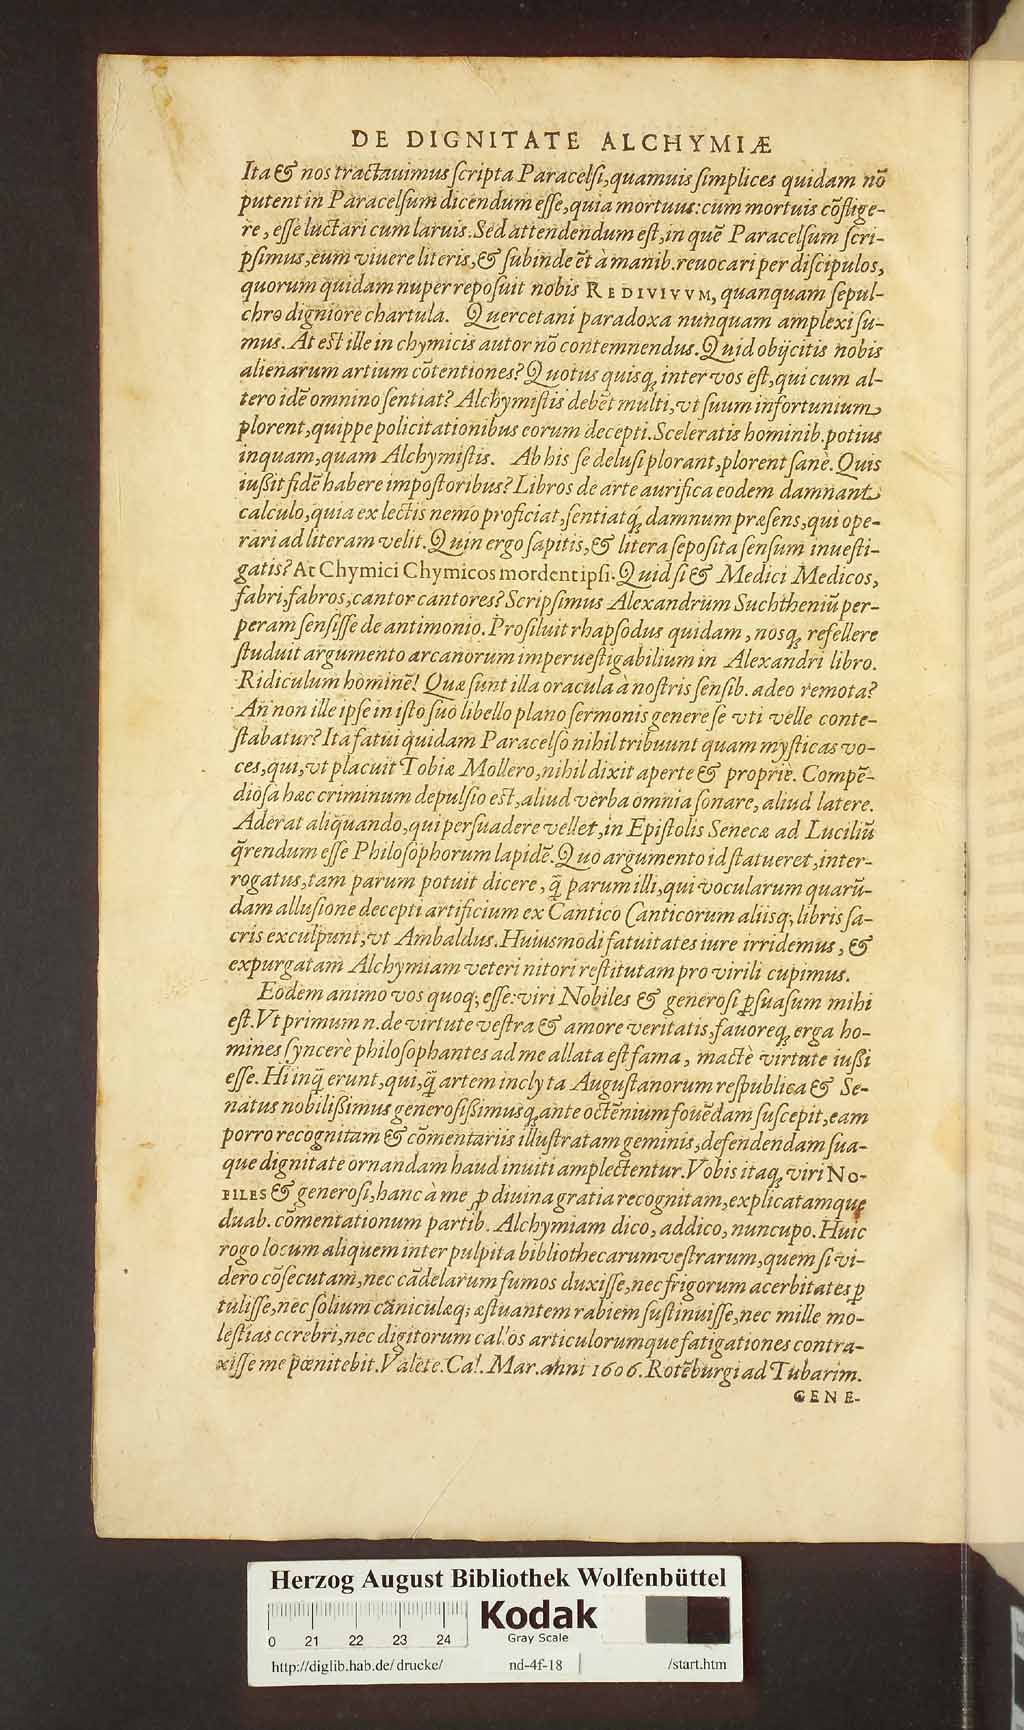 DE DIGNITATE ALCHYMIÆ
Ita & nos tractauimus ſcripta Paracelſi, quamuis ſimplices quidam nõ
putent in Paracelſum dicendum eſſe, quia mortuus: cum mortuis cõflige-
re, eſſe luctari cum laruis. Sed attendendum eſt, in quẽ Paracelſum ſcri-
pſimus, eum viuere literis, & ſubinde ẽt à manib. reuocari per diſcipulos,
quorum quidam nuper repoſuit nobis REDIVIVVM, quanquam ſepul-
chro digniore chartula. Quercetani paradoxa nunquam amplexi ſu-
mus. At eſt ille in chymicis autor nõ contemnendus. Quid obijcitis nobis
alienarum artium cõtentiones? Quotus quisq; inter vos eſt, qui cum al-
tero idẽ omnino ſentiat? Alchymiſtis debẽt multi, vt ſuum infortunium
plorent, quippe policitationibus eorum decepti. Sceleratis hominib. potius
inquam, quam Alchymiſtis. Ab his ſe deluſi plorant, plorent ſanè. Quis
iußit fidẽ habere impoſtoribus? Libros de arte aurifica eodem damnant
calculo, quia ex lectis nemo proficiat, ſentiatq́; damnum præſens, qui ope-
rari ad literam velit. Quin ergo ſapitis, & litera ſepoſita ſenſum inueſti-
gatis? At Chymici Chymicos mordent ipſi. Quid ſi & Medici Medicos,
fabri, fabros, cantor cantores? Scripſimus Alexandrum Suchtheniũ per-
peram ſenſiſſe de antimonio. Proſiluit rhapſodus quidam, nosq; refellere
ſtuduit argumento arcanorum imperueſtigabilium in Alexandri libro.
Ridiculum hominẽ! Quæ ſunt illa oracula à noſtris ſenſib. adeo remota?
An non ille ipſe in iſto ſuo libello plano ſermonis genere ſe vti velle conte-
ſtabatur? Ita fatui quidam Paracelſo nihil tribuunt quam myſticas vo-
ces, qui, vt placuit Tobiæ Mollero, nihil dixit aperte & propriè. Compẽ-
dioſa hæc criminum depulſio eſt, aliud verba omnia ſonare, aliud latere.
Aderat aliquando, qui perſuadere vellet, in Epiſtolis Senecæ ad Luciliũ
q̃rendum eſſe Philoſophorum lapidẽ. Quo argumento id ſtatueret, inter-
rogatus, tam parum potuit dicere, q̃ parum illi, qui vocularum quarũ-
dam alluſione decepti artificium ex Cantico Canticorum aliisq; libris ſa-
cris exculpunt, vt Ambaldus. Huiusmodi fatuitates iure irridemus, &
expurgatam Alchymiam veteri nitori reſtitutam pro virili cupimus.
Eodem animo vos quoq; eſſe: viri Nobiles & generoſi ꝑſuaſum mihi
eſt. Vt primum n. de virtute veſtra & amore veritatis, fauoreq; erga ho-
mines ſyncerè philoſophantes ad me allata eſt fama, mactè virtute iußi
eſſe. Hi inq̃ erunt, qui, q̃ artem inclyta Auguſtanorum reſpublica & Se-
natus nobilißimus generoſißimusq; ante octẽnium fouẽdam ſuſcepit, eam
porro recognitam & cõmentariis illuſtratam geminis, defendendam ſua-
que dignitate ornandam haud inuiti amplectentur. Vobis itaq; viri NO-
BILES & generoſi, hanc à me ꝓ diuina gratia recognitam, explicatamque
duab. cõmentationum partib. Alchymiam dico, addico, nuncupo. Huic
rogo locum aliquem inter pulpita bibliothecarum veſtrarum, quem ſi vi-
dero cõſecutam, nec cãdelarum fumos duxiſſe, nec frigorum acerbitates ꝑ
tuliſſe, nec ſolium caniculæq; æſtuantem rabiem ſuſtinuiſſe, nec mille mo-
leſtias cerebri, nec digitorum callos articulorumque fatigationes contra-
xiſſe me pœnitebit. Valete. Cal. Mar. anni 1606. Rotẽburgi ad Tubarim.
GENE-
Herzog August Bibliothek Wolfenbüttel
Kodak
Gray Scale
0 21 22 23 24
http://diglib.hab.de/drucke/ nd-4f-18 /start.htm